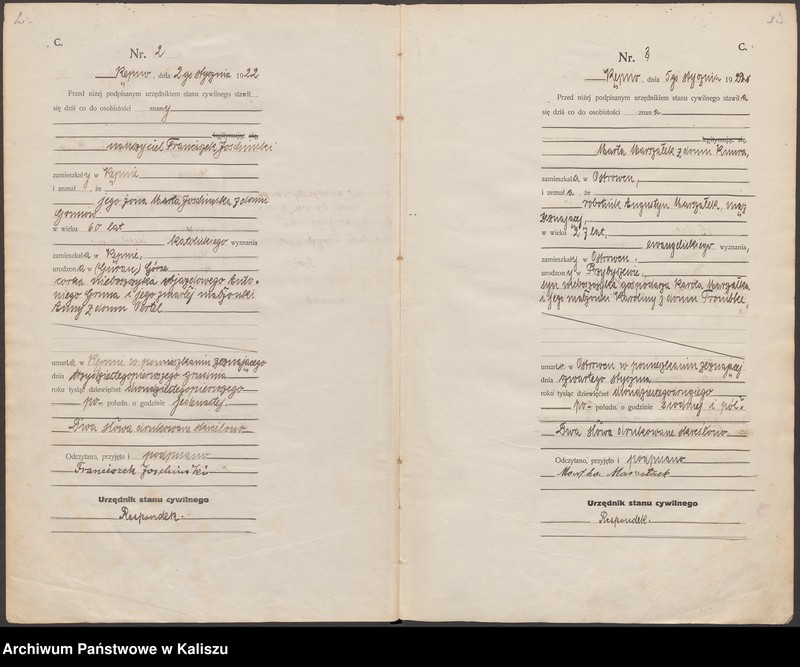 C.
Nr. 2
Kępno, dnia 2go stycznia 1922
Przed niżej podpisanym urzędnikiem stanu cywilnego stawił
się dziś co do osobistości znany
legitymując się,
nauczyciel Franciszek Joschinski
zamieszkały w Kępnie
i zeznał, że
jego żona Marta Joschinska z domu
w wieku 60 lat
katolickiego wyznania
zamieszkała w Kępnie,
urodzona w Górze
córka nieboszczyka objazdowego Anto-
niego i jego zmarłej małżonki
Anny z domu
umarła w Kępnie w pomieszkaniu zeznającego
dnia trzydziestegopierwszego grudnia
roku tysiąc dziewięćset dwudziestegopierwszego
po- połudn. o godzinie jedenastej.
Dwa słowa drukowane skreślono
Odczytano, przyjęto i podpisano
Franciszek Joschinski
Urzędnik stanu cywilnego
Respondek.
3.
C.
Nr. 3
Kępno, dnia 5go stycznia 1922
Przed niżej podpisanym urzędnikiem stanu cywilnego stawiła
się dziś co do osobistości znana
legitymując się,
Marta Marszałek z domu
zamieszkała w Ostrowcu,
i zeznała, że
robotnik Augustyn Marszałek, mąż
zeznającej,
w wieku 27 lat,
ewangelickiego wyznania,
zamieszkały w Ostrowcu.
urodzony w Przybyszewie,
syn nieboszczyka gospodarza Karola Marszałka
i jego małżonki Karoliny z domu
umarł w Ostrowcu w pomieszkaniu zeznającej
dnia czwartego stycznia
roku tysiąc dziewięćset dwudziestegodrugiego
po- połudn. o godzinie siódmej i pół.
Dwa słowa drukowane skreślono
Odczytano, przyjęto i podpisano
Martha Marszalek
Urzędnik stanu cywilnego
Respondek.
Archiwum Państwowe w Kaliszu